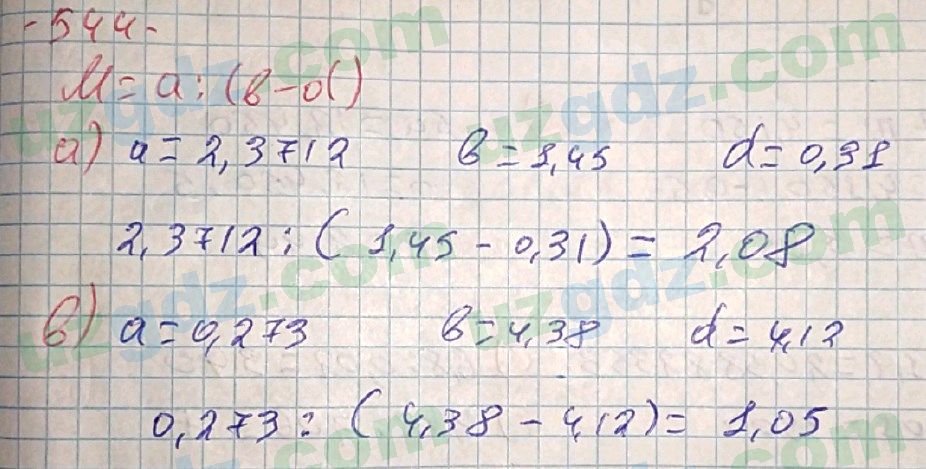 -544-
M = a : (b - d)
a) a = 2,3712 b = 1,45 d = 0,31
2,3712 : (1,45 - 0,31) = 2,08
b) a = 0,273 b = 4,38 d = 4,12
0,273 : (4,38 - 4,12) = 1,05
uzgdz.com